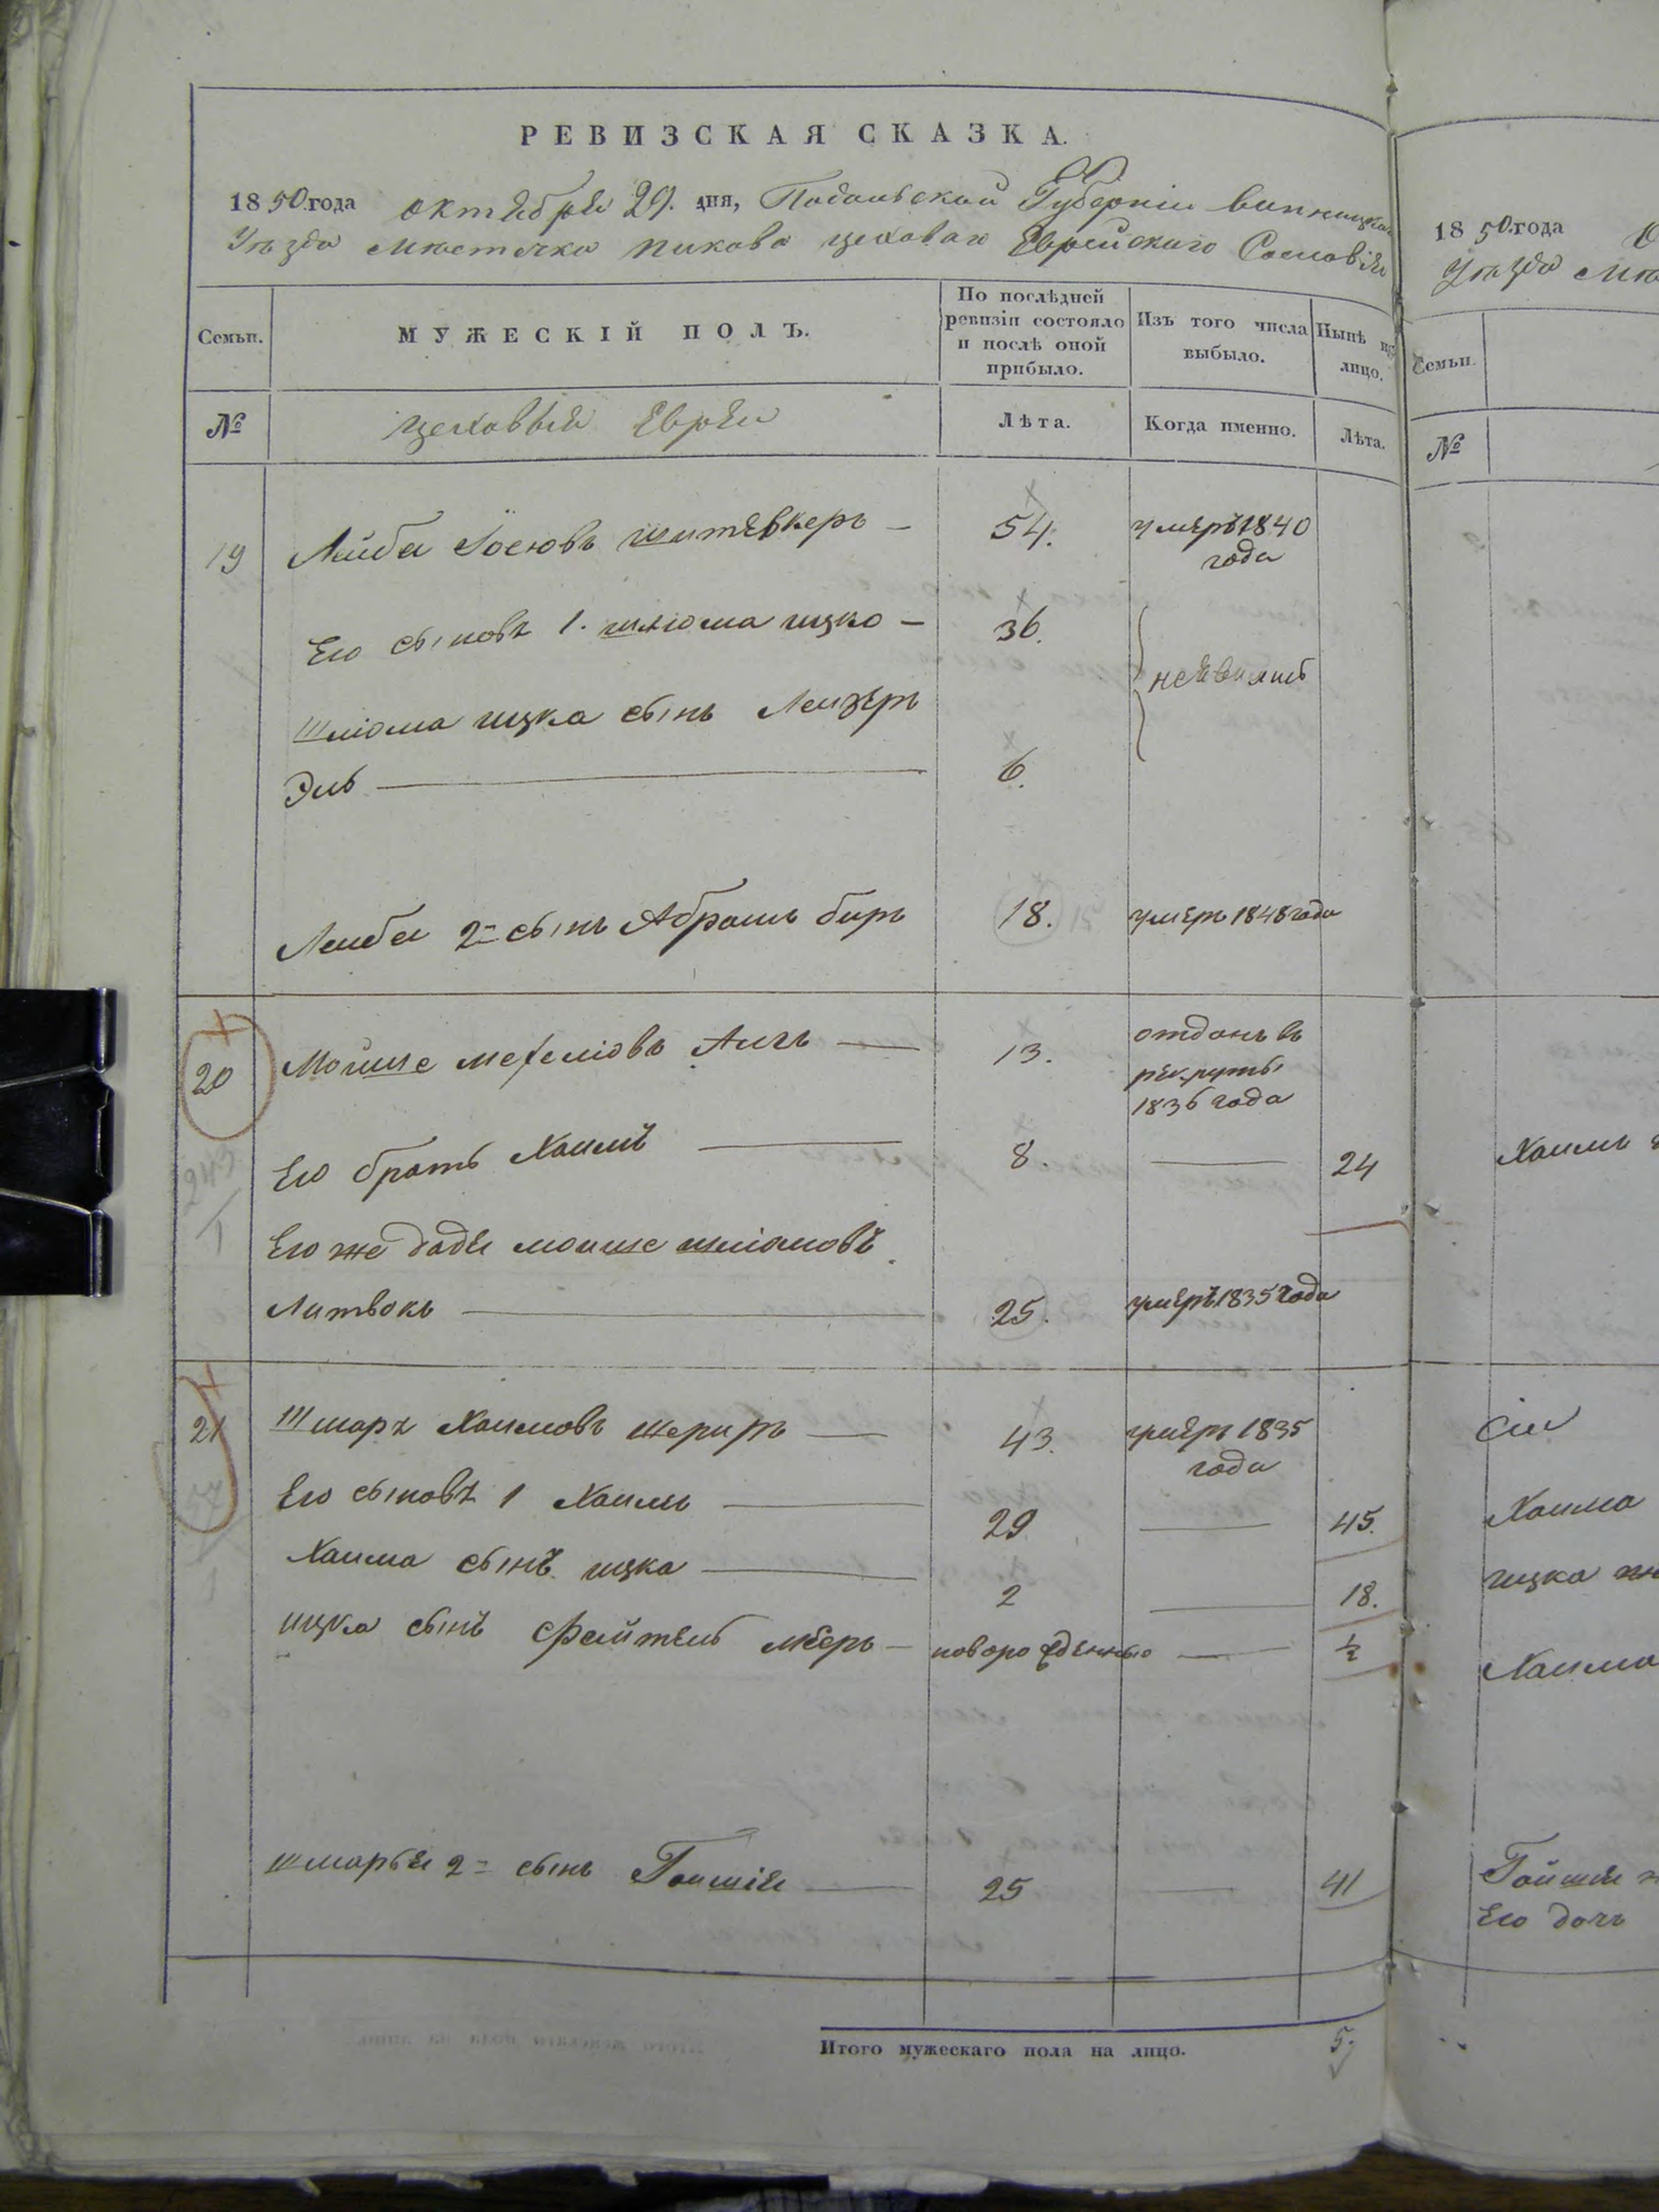 РЕВИЗСКАЯ СКАЗКА.
1850 года октября 29. дня, Подольской Губерніи Винницкаго
Уѣзда местечка Пикова цеховаго Еврейскаго Сословія
Семьи. МУЖЕСКІЙ ПОЛЪ. По послѣдней ревизіи состояло и послѣ оной прибыло. Изъ того числа выбыло. Нынѣ на лицо.
№ цеховыя Евреи Лѣта. Когда именно. Лѣта.
19 Лейба Іосіовъ 54. умеръ 1840
года
Его сыновъ 1. шліома ицко — 36.
неявилис
Шліома ицка сынъ Лейзеръ
Эль — 6.
Лейба 2й сынъ Абрамъ беръ 18. умеръ 1848 года
20 Мойше — 13. отданъ въ
рекруты
1836 года
Его братъ Хаимъ — 8. — 24
Его же дядя мойше шліомовъ
Литвокъ — 25. умеръ 1835 года
21 Шмаръ Хаимовъ — 43. умеръ 1835
года
Его сыновъ 1 Хаимъ — 29 — 45.
Хаима сынъ ицка — 2 — 18.
ицка сынъ Фейтель — новорожденный — ½
шмарья 2й сынъ — 25 — 41
Итого мужескаго пола на лицо. 5.
1850 года
Уѣзда
Семьи.
№
Хаимъ
Хаима
ицка
Хаима
Его дочь